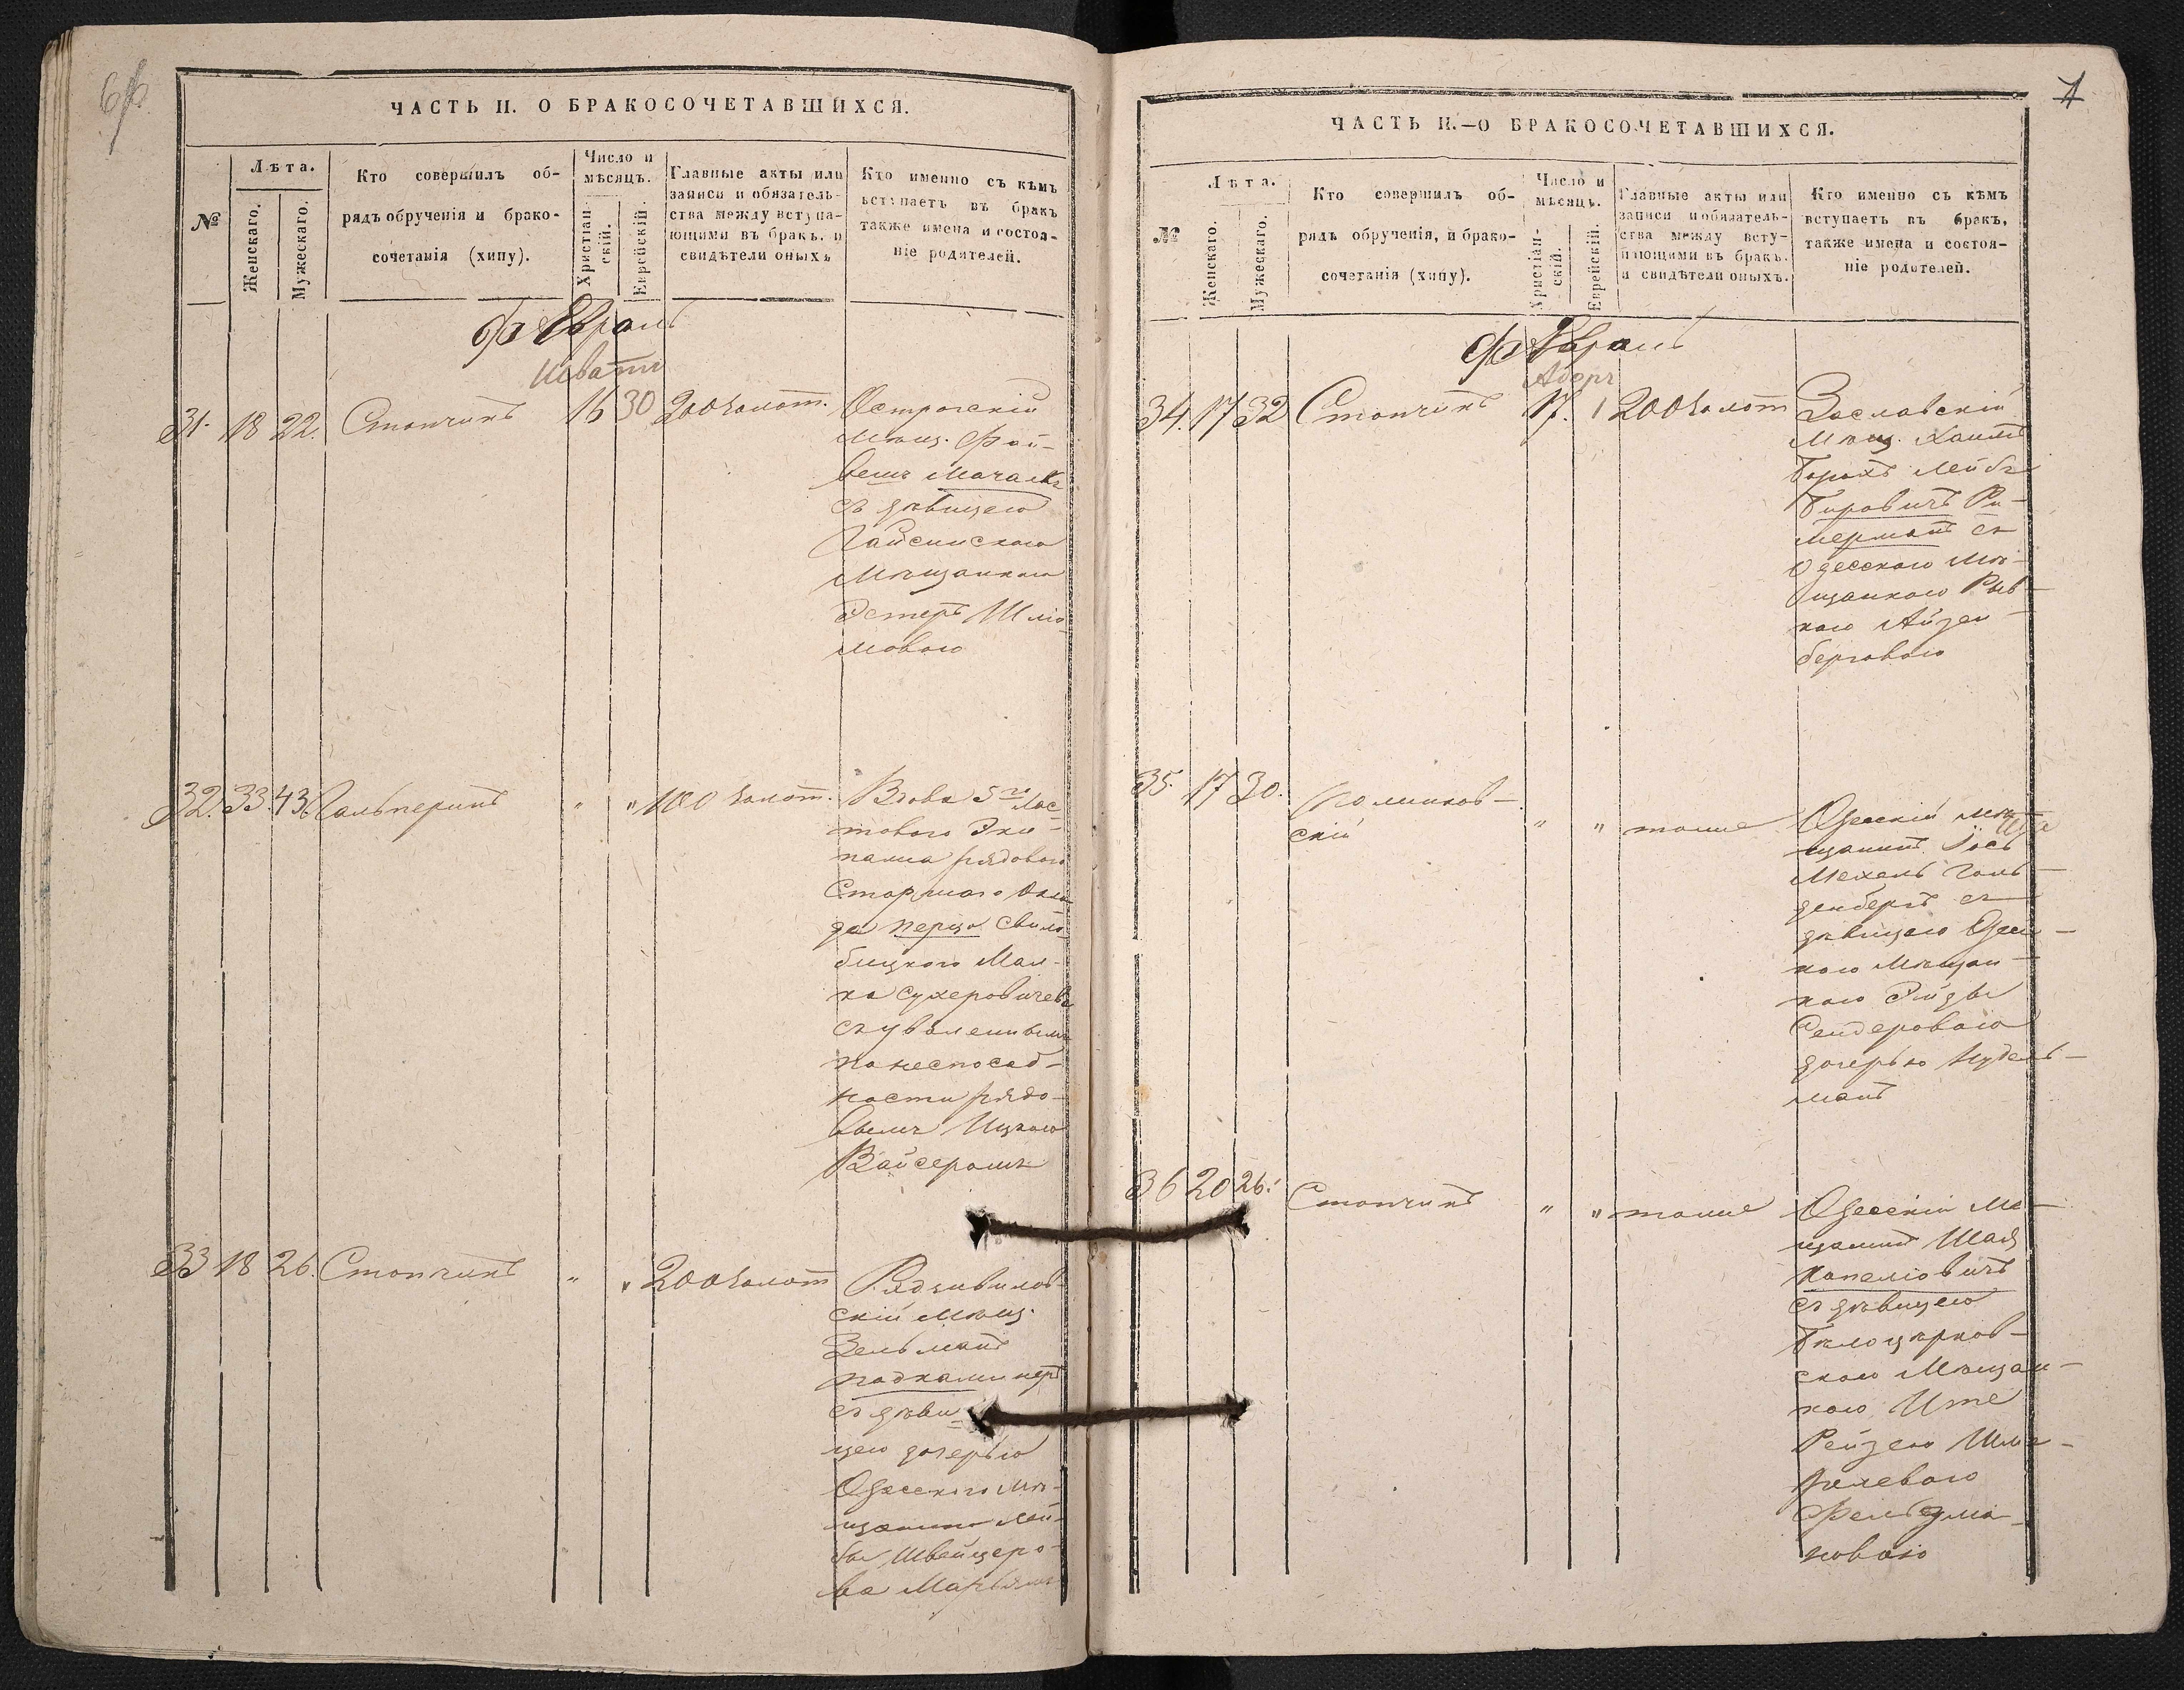 ЧАСТЬ II. О БРАКОСОЧЕТАВШИХСЯ.
№
Лѣта.
Женскаго.
Мужескаго.
Кто совершилъ об-
рядъ обрученія и брако-
сочетанія (хипу).
Число и
мѣсяцъ.
Христіан-
скій.
Еврейскій.
Главные акты или
записи и обязатель-
ства между вступа-
ющими въ бракъ, и
свидѣтели оныхъ
Кто именно съ кѣмъ
вступаетъ въ бракъ
также имена и состоя-
ніе родителей.
Февраль
Шватъ
31. 18 22. Стопчикъ 16 30 200 золот. Острогскій
Мѣщ. Фай-
вешъ Мочалкъ
съ дѣвицею
Гайсинскою
Мѣщанкою
Эстеръ Шліо-
мовою
32. 33. 43 Гальперинъ " " 100 золот. Вдова 5го Лас-
товаго Эки-
пажа рядоваго
Старшаго Окла-
да Перца Свило-
бицкого Мал-
ка Сухеровичева
съ уволеннымъ
по неспособ-
ности рядо-
вымъ Ицкою
Вайсеромъ
33 18 26. Стопчикъ " " 200 золот Радзивилов-
скій Мѣщ.
Зельманъ
Подкаминеръ
съ дѣви-
цею дочерью
Одесского Мѣ-
щанина Лей-
бы Швейцеро-
ва Марьямъ
ЧАСТЬ II.—О БРАКОСОЧЕТАВШИХСЯ.
№
Лѣта.
Женскаго.
Мужескаго.
Кто совершилъ об-
рядъ обрученія, и брако-
сочетанія (хипу).
Число и
мѣсяцъ.
Христіан-
скій.
Еврейскій.
Главные акты или
записи и обязатель-
ства между всту-
пающими въ бракъ.
и свидѣтели оныхъ.
Кто именно съ кѣмъ
вступаетъ въ бракъ,
также имена и состоя-
ніе родителей.
Февраль
Адоръ
34. 17 32 Стопчикъ 17. 1 200 золот Заславскій
Мѣщ. Хаимъ
Борохъ Лейбъ
Бировичъ Ри-
мерманъ съ
Одесскою Мѣ-
щанкою Рыв-
кою Айзен-
берговою
35. 17 30. Полинков-
скій " " тоже Одесскій Мѣ-
щанинъ Іось
Мехель Голь-
денбергъ съ
дѣвицею Одес-
кою Мѣщан-
кою Эйдзы
Сендеровою
дочерью Нудель-
манъ
36 20 26. Стопчикъ " " тоже Одесскій Ме-
щанинъ Шая
Копеліовичъ
съ дѣвицею
Бѣлоцерков-
скою Мѣщан-
кою Ите
Рейзею Шма-
релевою
Фельдма-
новою